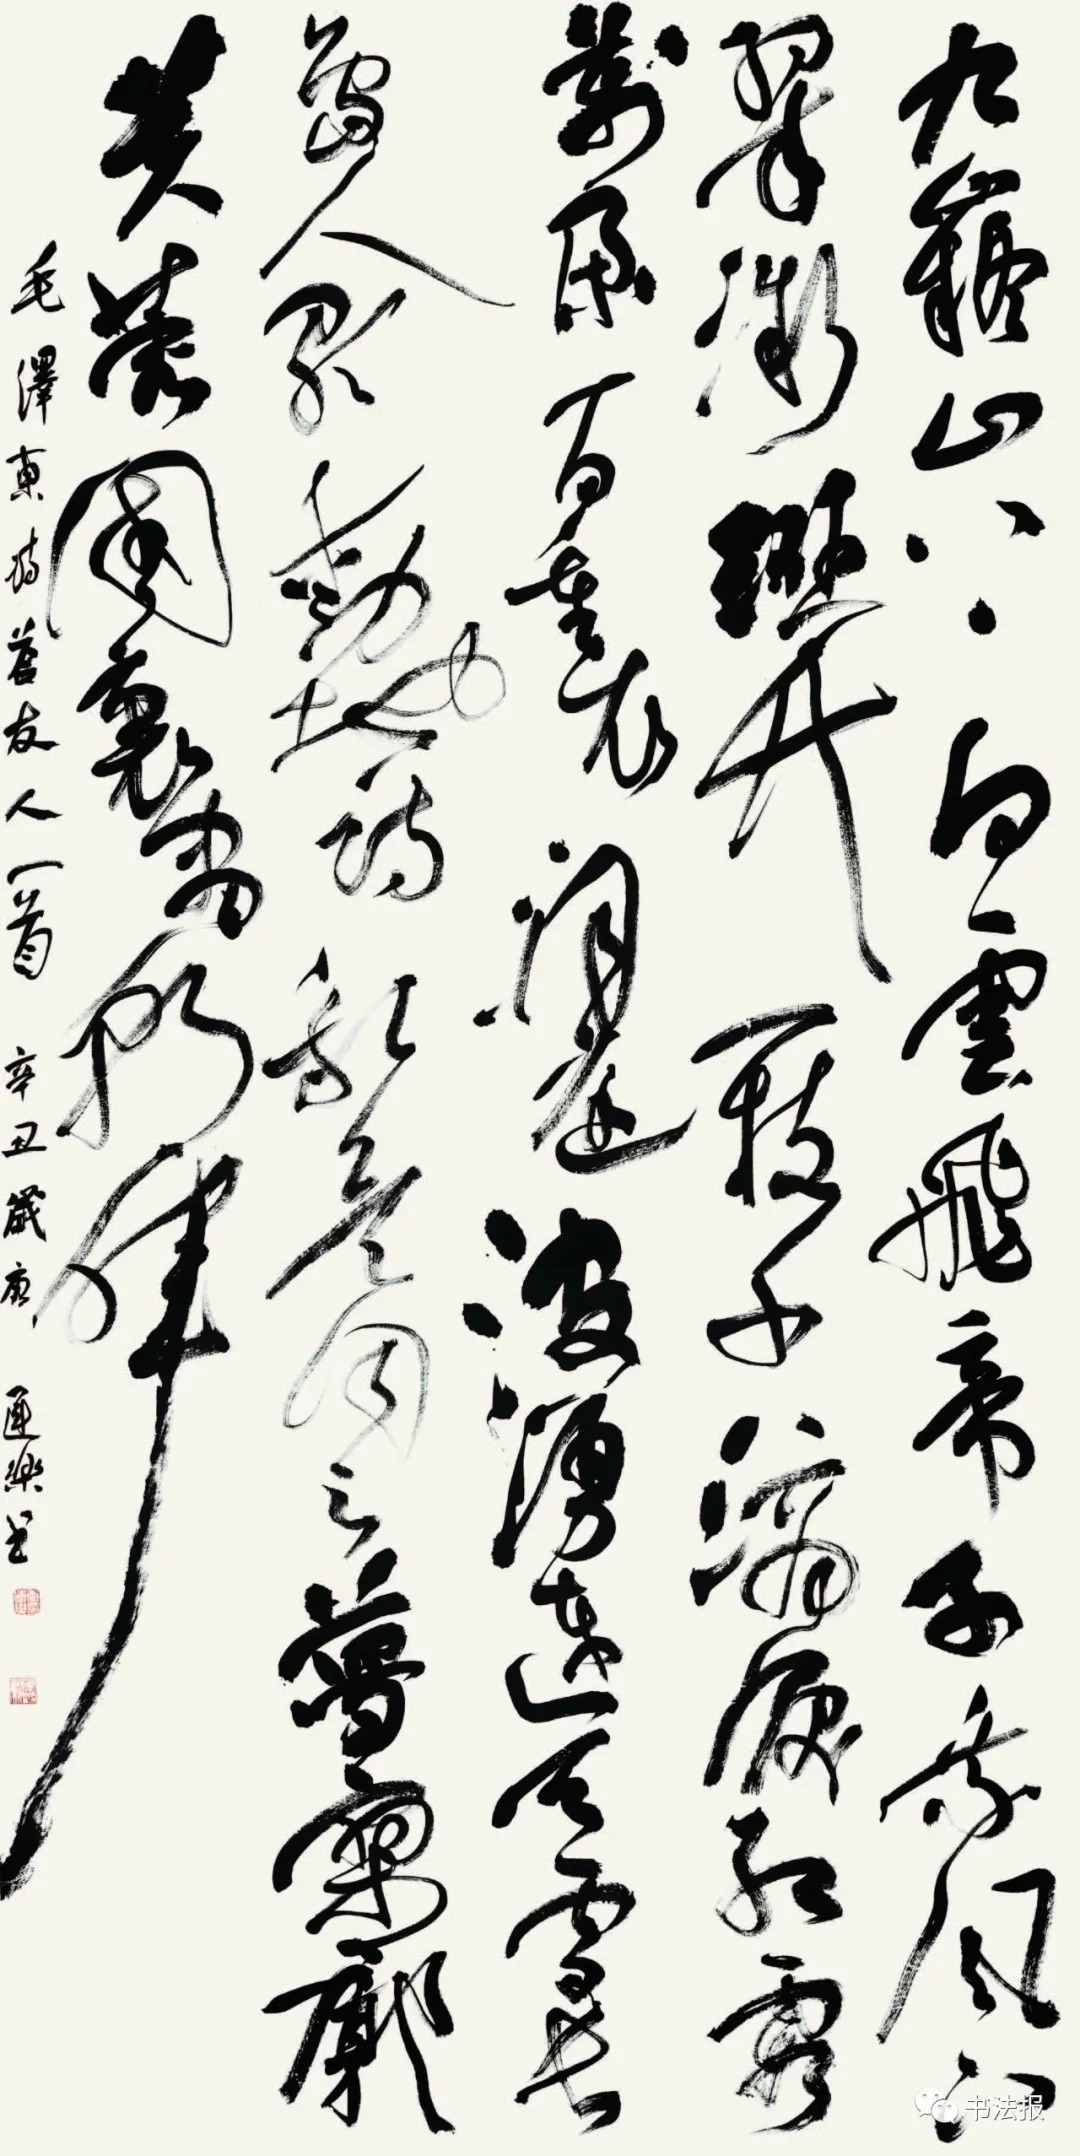 九嶷山上白雲飛帝子乘風下
翠微斑竹一枝千滴淚紅霞
萬朵百重衣洞庭波湧連天雪長
島人歌動地詩我欲因之夢寥廓
芙蓉國裏盡朝暉
毛澤東詩答友人一首 辛丑歲 樂書
书法报